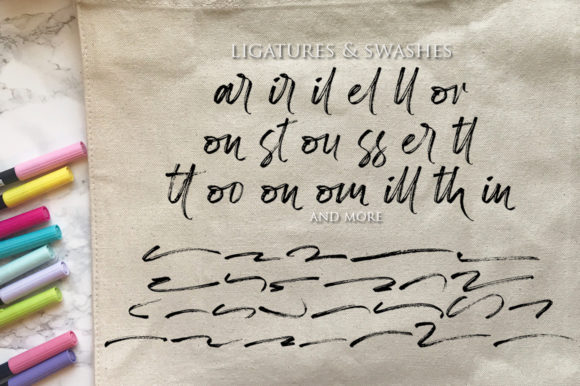 LIGATURES & SWASHES
ar ir il el ll or
on st ou ss er tl
tt oo on om ill th in
AND MORE